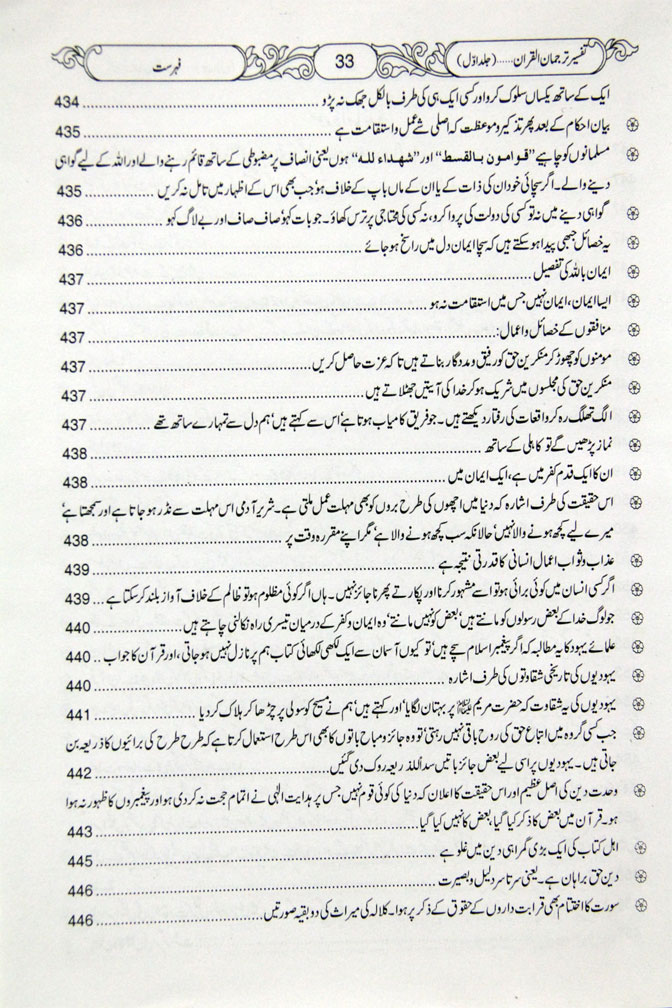 تفسیر ترجمان القرآن.....(جلد اوّل)
33
فہرست
ایک کے ساتھ یکساں سلوک کرو اور کسی ایک ہی کی طرف بالکل جھک نہ پڑو ... 434
بیان احکام کے بعد پھر تذکیر و موعظت کہ اصلی شے عمل و استقامت ہے ... 435
مسلمانوں کو چاہیے "قوامون بالقسط" اور "شهداء لله" ہوں یعنی انصاف پر مضبوطی کے ساتھ قائم رہنے والے اور اللہ کے لیے گواہی
دینے والے۔ اگر سچائی خود ان کی ذات کے یا ان کے ماں باپ کے خلاف ہو، جب بھی اس کے اظہار میں تامل نہ کریں ... 435
گواہی دینے میں نہ تو کسی کی دولت کی پروا کرو، نہ کسی کی محتاجی پر ترس کھاؤ۔ جو بات کہو، صاف صاف اور بے لاگ کہو ... 436
یہ خصائل جبھی پیدا ہو سکتے ہیں کہ سچا ایمان دل میں راسخ ہو جائے ... 436
ایمان باللہ کی تفصیل ... 437
ایسا ایمان، ایمان نہیں جس میں استقامت نہ ہو ... 437
منافقوں کے خصائل و اعمال: ... 437
مومنوں کو چھوڑ کر منکرین حق کو رفیق و مددگار بناتے ہیں تاکہ عزت حاصل کریں ... 437
منکرین حق کی مجلسوں میں شریک ہو کر خدا کی آیتیں جھٹلاتے ہیں ... 437
الگ تھلگ رہ کر واقعات کی رفتار دیکھتے ہیں۔ جو فریق کامیاب ہوتا ہے، اس سے کہتے ہیں، ہم دل سے تمہارے ساتھ تھے ... 437
نماز پڑھیں گے تو کاہلی کے ساتھ ... 438
ان کا ایک قدم کفر میں ہے، ایک ایمان میں ... 438
اس حقیقت کی طرف اشارہ کہ دنیا میں اچھوں کی طرح بروں کو بھی مہلت عمل ملتی ہے۔ شریر آدمی اس مہلت سے نڈر ہو جاتا ہے اور سمجھتا ہے'
میرے لیے کچھ ہونے والا نہیں' حالانکہ سب کچھ ہونے والا ہے' مگر اپنے مقررہ وقت پر ... 438
عذاب و ثواب اعمال انسانی کا قدرتی نتیجہ ہے ... 439
اگر کسی انسان میں کوئی برائی ہو تو اسے مشہور کرنا اور پکارتے پھرنا جائز نہیں۔ ہاں اگر کوئی مظلوم ہو تو ظالم کے خلاف آواز بلند کر سکتا ہے ... 439
جو لوگ خدا کے بعض رسولوں کو مانتے ہیں' بعض کو نہیں مانتے' وہ ایمان و کفر کے درمیان تیسری راہ نکالنی چاہتے ہیں ... 440
علمائے یہود کا یہ مطالبہ کہ اگر پیغمبر اسلام سچے ہیں' تو کیوں آسمان سے ایک لکھی لکھائی کتاب ہم پر نازل نہیں ہو جاتی، اور قرآن کا جواب .. 440
یہودیوں کی تاریخی شقاوتوں کی طرف اشارہ ... 440
یہودیوں کی یہ شقاوت کہ حضرت مریم علیہا السلام پر بہتان لگایا' اور کہتے ہیں' ہم نے مسیح کو سولی پر چڑھا کر ہلاک کر دیا ... 441
جب کسی گروہ میں اتباع حق کی روح باقی نہیں رہتی' تو وہ جائز و مباح باتوں کا بھی اس طرح استعمال کرتا ہے کہ طرح طرح کی برائیوں کا ذریعہ بن
جاتی ہیں۔ یہودیوں پر اسی لیے بعض جائز باتیں سداً للذریعہ روک دی گئیں ... 442
وحدت دین کی اصل عظیم اور اس حقیقت کا اعلان کہ دنیا کی کوئی قوم نہیں جس پر ہدایت الٰہی نے اتمام حجت نہ کر دی ہو اور پیغمبروں کا ظہور نہ ہوا
ہو۔ قرآن میں بعض کا ذکر کیا گیا، بعض کا نہیں کیا گیا ... 443
اہل کتاب کی ایک بڑی گمراہی دین میں غلو ہے ... 445
دین حق برہان ہے۔ یعنی سر تا سر دلیل و بصیرت ... 446
سورت کا اختتام بھی قرابت داروں کے حقوق کے ذکر پر ہوا۔ کلالہ کی میراث کی دو بقیہ صورتیں ... 446